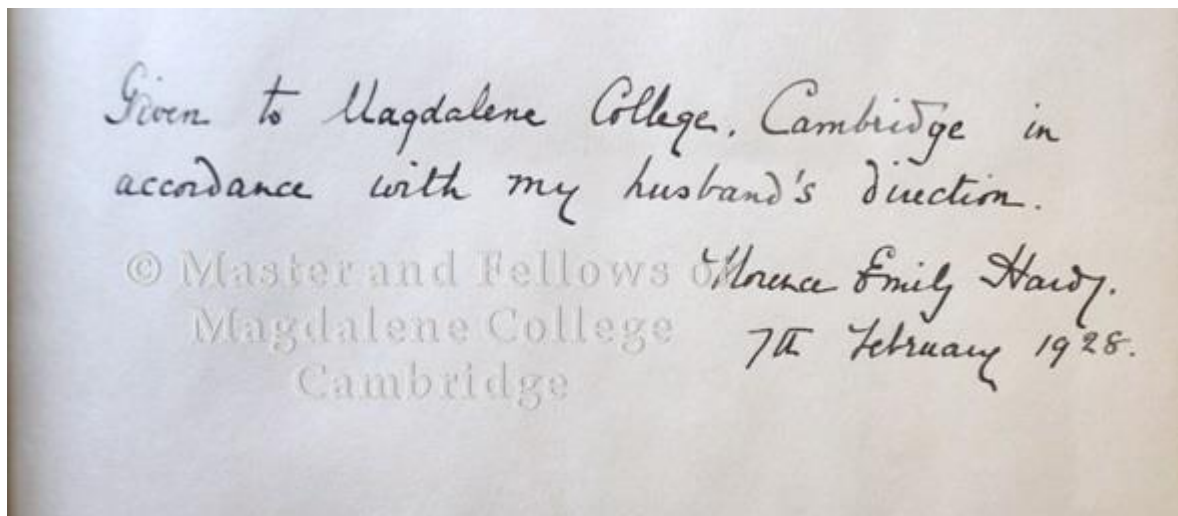 Given to Magdalene College, Cambridge in
accordance with my husband's direction.
Florence Emily Hardy.
7th February 1928.
© Master and Fellows of
Magdalene College
Cambridge